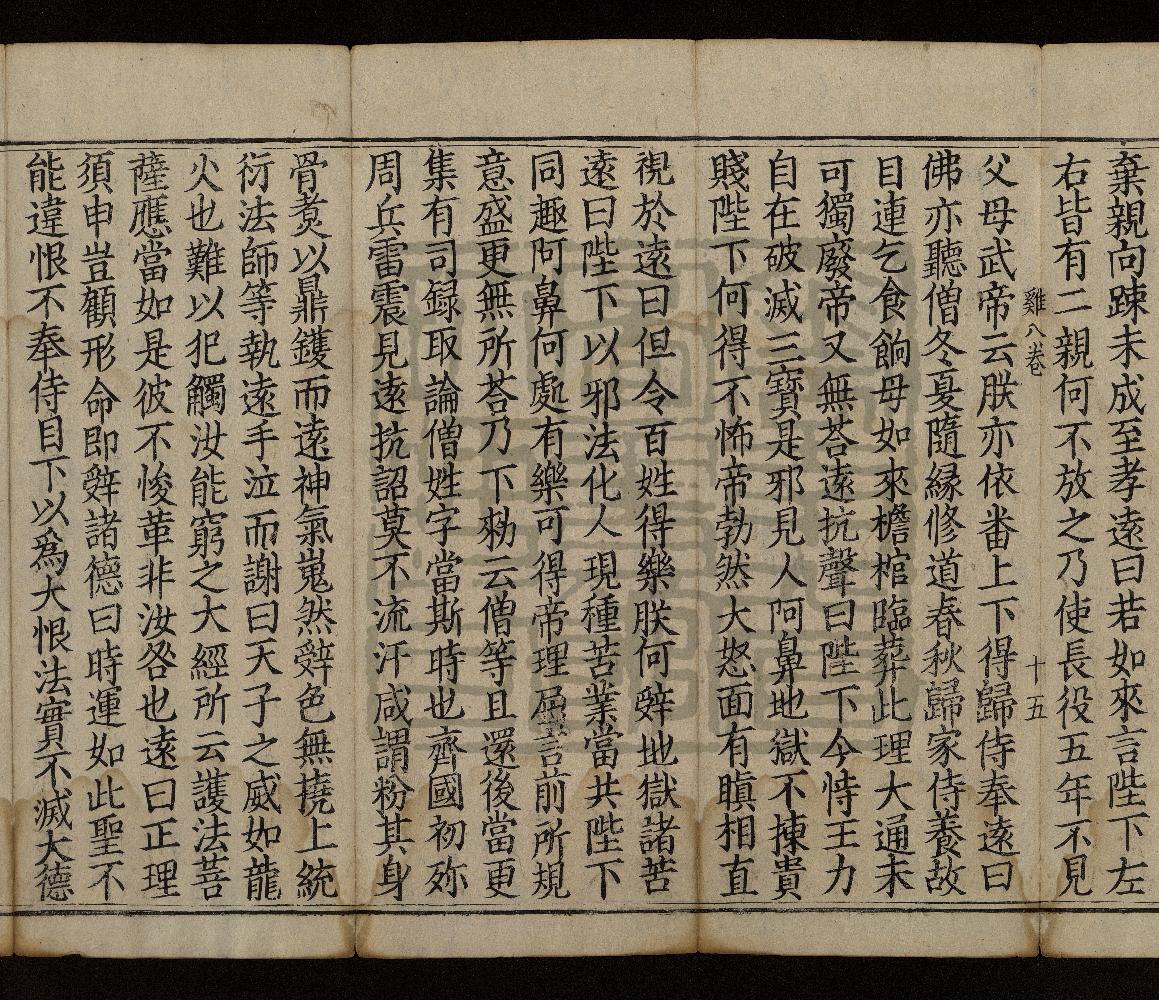 棄親向踈未成至孝遠曰若如來言陛下左
右皆有二親何不放之乃使長役五年不見
雞八卷 十五
父母武帝云朕亦依番上下得歸侍奉遠曰
佛亦聽僧冬夏隨緣修道春秋歸家侍養故
目連乞食餉母如來檐棺臨葬此理大通未
可獨廢帝又無荅遠抗聲曰陛下今恃王力
自在破滅三寶是邪見人阿鼻地獄不揀貴
賤陛下何得不怖帝勃然大怒面有瞋相直
視於遠曰但令百姓得樂朕何辤地獄諸苦
遠曰陛下以邪法化人現種苦業當共陛下
同趣阿鼻何處有樂可得帝理屈言前所規
意盛更無所荅乃下勑云僧等且還後當更
集有司録取論僧姓字當斯時也齊國初殄
周兵雷震見遠抗詔莫不流汗咸謂粉其身
骨煑以鼎鑊而遠神氣嵬然辤色無撓上統
衍法師等執遠手泣而謝曰天子之威如龍
火也難以犯觸汝能窮之大經所云護法菩
薩應當如是彼不悛革非汝咎也遠曰正理
須申豈顧形命即辤諸德曰時運如此聖不
能違恨不奉侍目下以爲大恨法實不滅大德